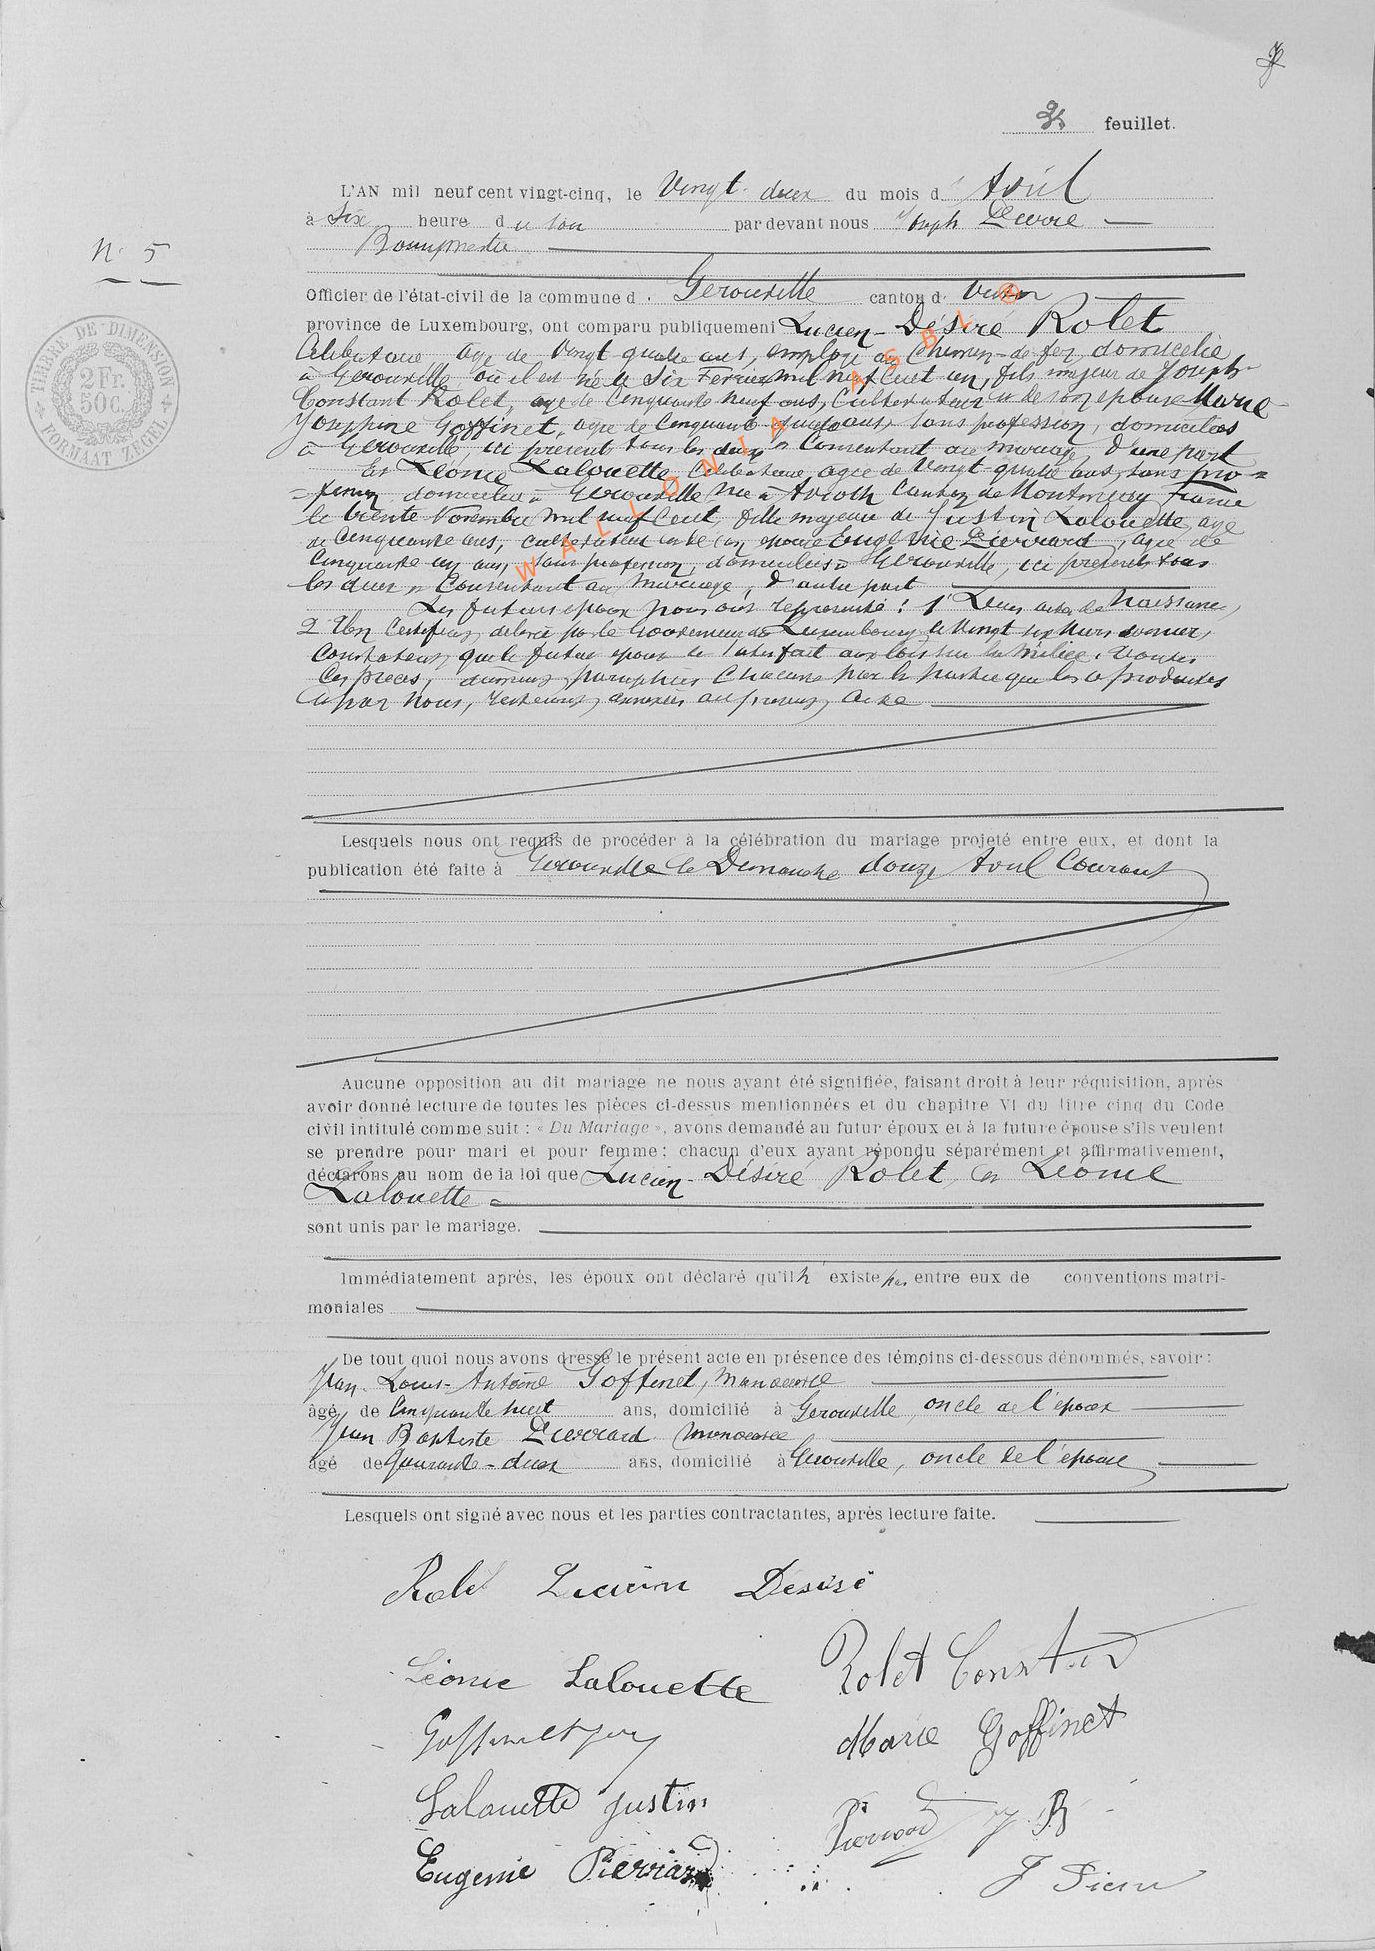 3 feuillet.
L'AN mil neuf cent vingt-cinq, le Vingt-deux du mois d' Avril
à Six heure du soir par devant nous Joseph Pierre
Bourgmestre
N° 5
Officier de l'état-civil de la commune d. Gerouville canton d. Virton
province de Luxembourg, ont comparu publiquement Lucien-Désiré Rolet
Célibataire, âgé de Vingt quatre ans, employé au Chemin-de fer, domicilié
à Gerouville où il est né le Six Février mil neuf Cent un, fils majeur de Joseph-
Constant Rolet, âgé de Cinquante neuf ans, Cultivateur et de son épouse Marie-
Joséphine Goffinet, agée de Cinquante ans, sans profession, domiciliés
à Gerouville, ici présents tous les deux et Consentant au mariage, d'une part
Et Léonie Lalouette, Célibataire, agée de Vingt-quatre ans, sans pro=
=fession domiciliée à Gerouville née à Avioth Canton de Montmedy France
le trente Novembre mil neuf Cent, fille majeure de Justin Lalouette, âgé
de Cinquante ans, cultivateur et de son épouse Eugénie Pierrard, agée de
Cinquante un ans, sans profession, domiciliés à Gerouville, ici présents tous
les deux et Consentant au mariage, d'autre part
Les futurs époux nous ont représenté: 1° Leurs actes de Naissance,
2° Un Certificat délivré par le Gouverneur du Luxembourg le Vingt six Mars dernier,
Constatant que le futur époux a satisfait aux lois sur la Milice. Toutes
ces pièces, dûment paraphées Chacune par la partie que les a produites
et par Nous, resteront annexées au présent acte
Lesquels nous ont requis de procéder à la célébration du mariage projeté entre eux, et dont la
publication été faite à Gerouville le Dimanche douze Avril Courant
Aucune opposition au dit mariage ne nous ayant été signifiée, faisant droit à leur réquisition, après
avoir donné lecture de toutes les pièces ci-dessus mentionnées et du chapitre VI du titre cinq du Code
civil intitulé comme suit : « Du Mariage », avons demandé au futur époux et à la future épouse s'ils veulent
se prendre pour mari et pour femme; chacun d'eux ayant répondu séparément et affirmativement,
déclarons au nom de la loi que Lucien-Désiré Rolet, et Léonie
Lalouette =
sont unis par le mariage.
Immédiatement après, les époux ont déclaré qu'il n'existe pas entre eux de conventions matri-
moniales
De tout quoi nous avons dressé le présent acte en présence des témoins ci-dessous dénommés, savoir :
Jean-Louis-Antoine Goffinet, manoeuvre
âgé de Cinquante huit ans, domicilié à Gerouville, oncle de l'époux
Jean Baptiste Pierrard manoeuvre
âgé de Quarante-deux ans, domicilié à Gerouville, oncle de l'épouse
Lesquels ont signé avec nous et les parties contractantes, après lecture faite.
Rolet Lucien Désiré
Léonie Lalouette Rolet Constant
Goffinet Marie Goffinet
Lalouette Justin Pierrard J B
Eugenie Pierrard J Pierre
TIMBRE DE DIMENSION
2 Fr. 50 c.
FORMAAT ZEGEL
WALLONIA ASBL ®